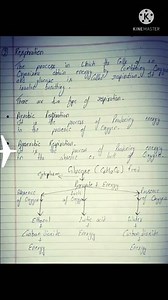 KINEMASTER
Respiration
The process in which the cells of an
Organisms obtain energy by combining Oxygen
and glucose is called respiration. It is
There are two type of respiration.
Aerobic Respiration
It is the process of Producing energy
in the presence of Oxygen.
Anaerobic Respiration
It is the process of Producing energy
in the absence of Oxygen
Glucose (C6H12O6)
Energy
Absence of Oxygen
Lack of Oxygen
Presence of Oxygen
Ethanol
Lactic acid
Water
Carbon dioxide
Energy
Carbon dioxide
Energy
Energy